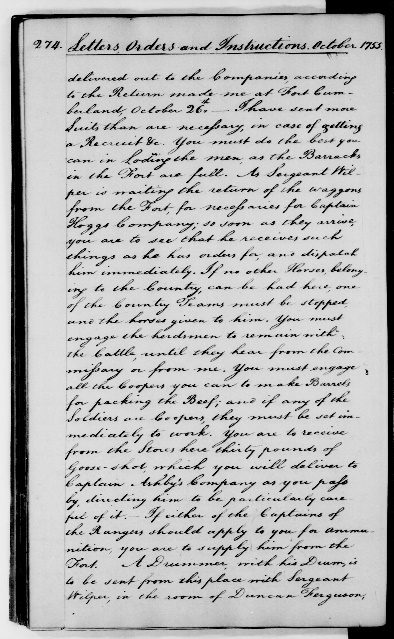 274. Letters Orders and Instructions. October 1755.
delivered out to the Companies, according
to the Return made me at Fort Cum-
berland, October 26th. — I have sent more
Suits than are necessary, in case of getting
a Recruit &c. You must do the best you
can in Loding the men, as the Barracks
in the Fort are full. As Sergeant Wil-
per is waiting the return of the waggons
from the Fort, for necessaries for Captain
Hoggs Company; so soon as they arrive,
you are to see that he receives such
things as he has orders for, and dispatch
him immediately. If no other Horses, belong-
ing to the Country, can be had here, one
of the Country Teams must be stopped,
and the horses given to him. You must
engage the herdsmen to remain with
the Cattle, until they hear from the Com-
missary or from me. You must engage
all the Coopers you can to make Barrels
for packing the Beef; and if any of the
Soldiers are Coopers, they must be set im-
mediately to work. You are to receive
from the Stores here thirty pounds of
Goose-shot, which you will deliver to
Captain Ashby's Company as you pass
by, directing him to be particularly care-
ful of it. — If either of the Captains of
the Rangers should apply to you for ammu-
nition, you are to supply him from the
Fort. A Drummer, with his Drum, is
to be sent from this place with Sergeant
Wilper, in the room of Duncan Ferguson;